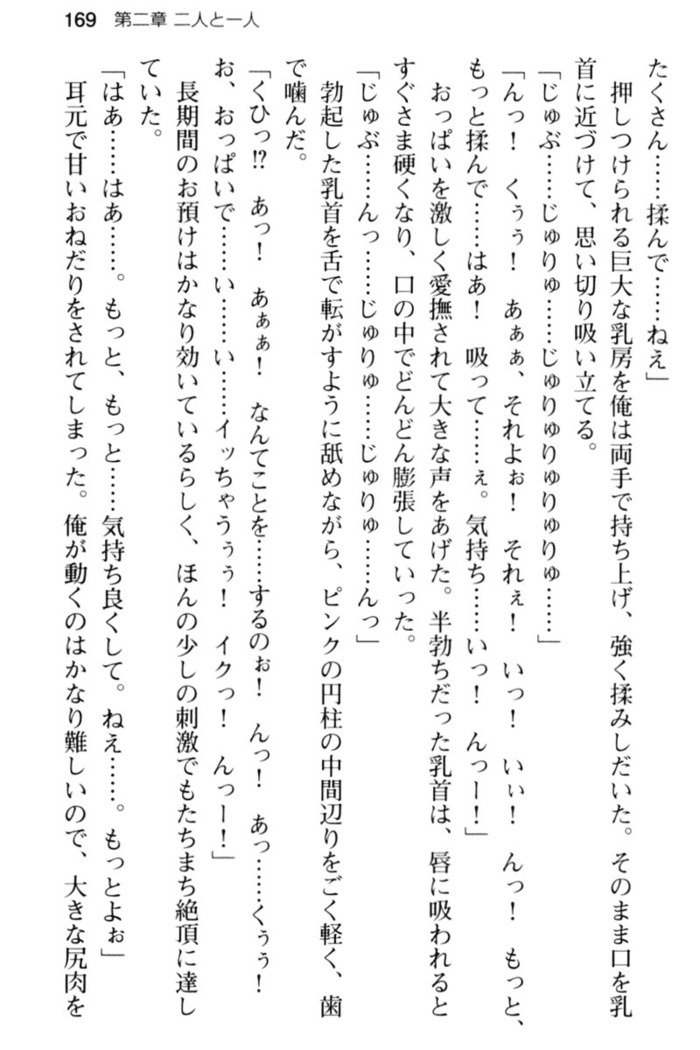 169 第二章 二人と一人
たくさん……揉んで……ねえ」
　押しつけられる巨大な乳房を俺は両手で持ち上げ、強く揉みしだいた。そのまま口を乳
首に近づけて、思い切り吸い立てる。
「じゅぶ……じゅりゅ……じゅりゅりゅりゅりゅ……」
「んっ！　くぅぅ！　あぁぁ、それよぉ！　それぇ！　いっ！　いぃ！　んっ！　もっと、
もっと揉んで……はあ！　吸って……ぇ。気持ち……いっ！　んっー！」
　おっぱいを激しく愛撫されて大きな声をあげた。半勃ちだった乳首は、唇に吸われると
すぐさま硬くなり、口の中でどんどん膨張していった。
「じゅぶ……んっ……じゅりゅ……じゅりゅ……んっ」
　勃起した乳首を舌で転がすように舐めながら、ピンクの円柱の中間辺りをごく軽く、歯
で噛んだ。
「くひっ!?　あっ！　あぁぁ！　なんてことを……するのぉ！　んっ！　あっ……くぅぅ！
お、おっぱいで……い……い……イッちゃうぅぅ！　イクっ！　んっー！」
　長期間のお預けはかなり効いているらしく、ほんの少しの刺激でもたちまち絶頂に達し
ていた。
「はあ……はあ……。もっと、もっと……気持ち良くして。ねえ……。もっとよぉ」
　耳元で甘いおねだりをされてしまった。俺が動くのはかなり難しいので、大きな尻肉を